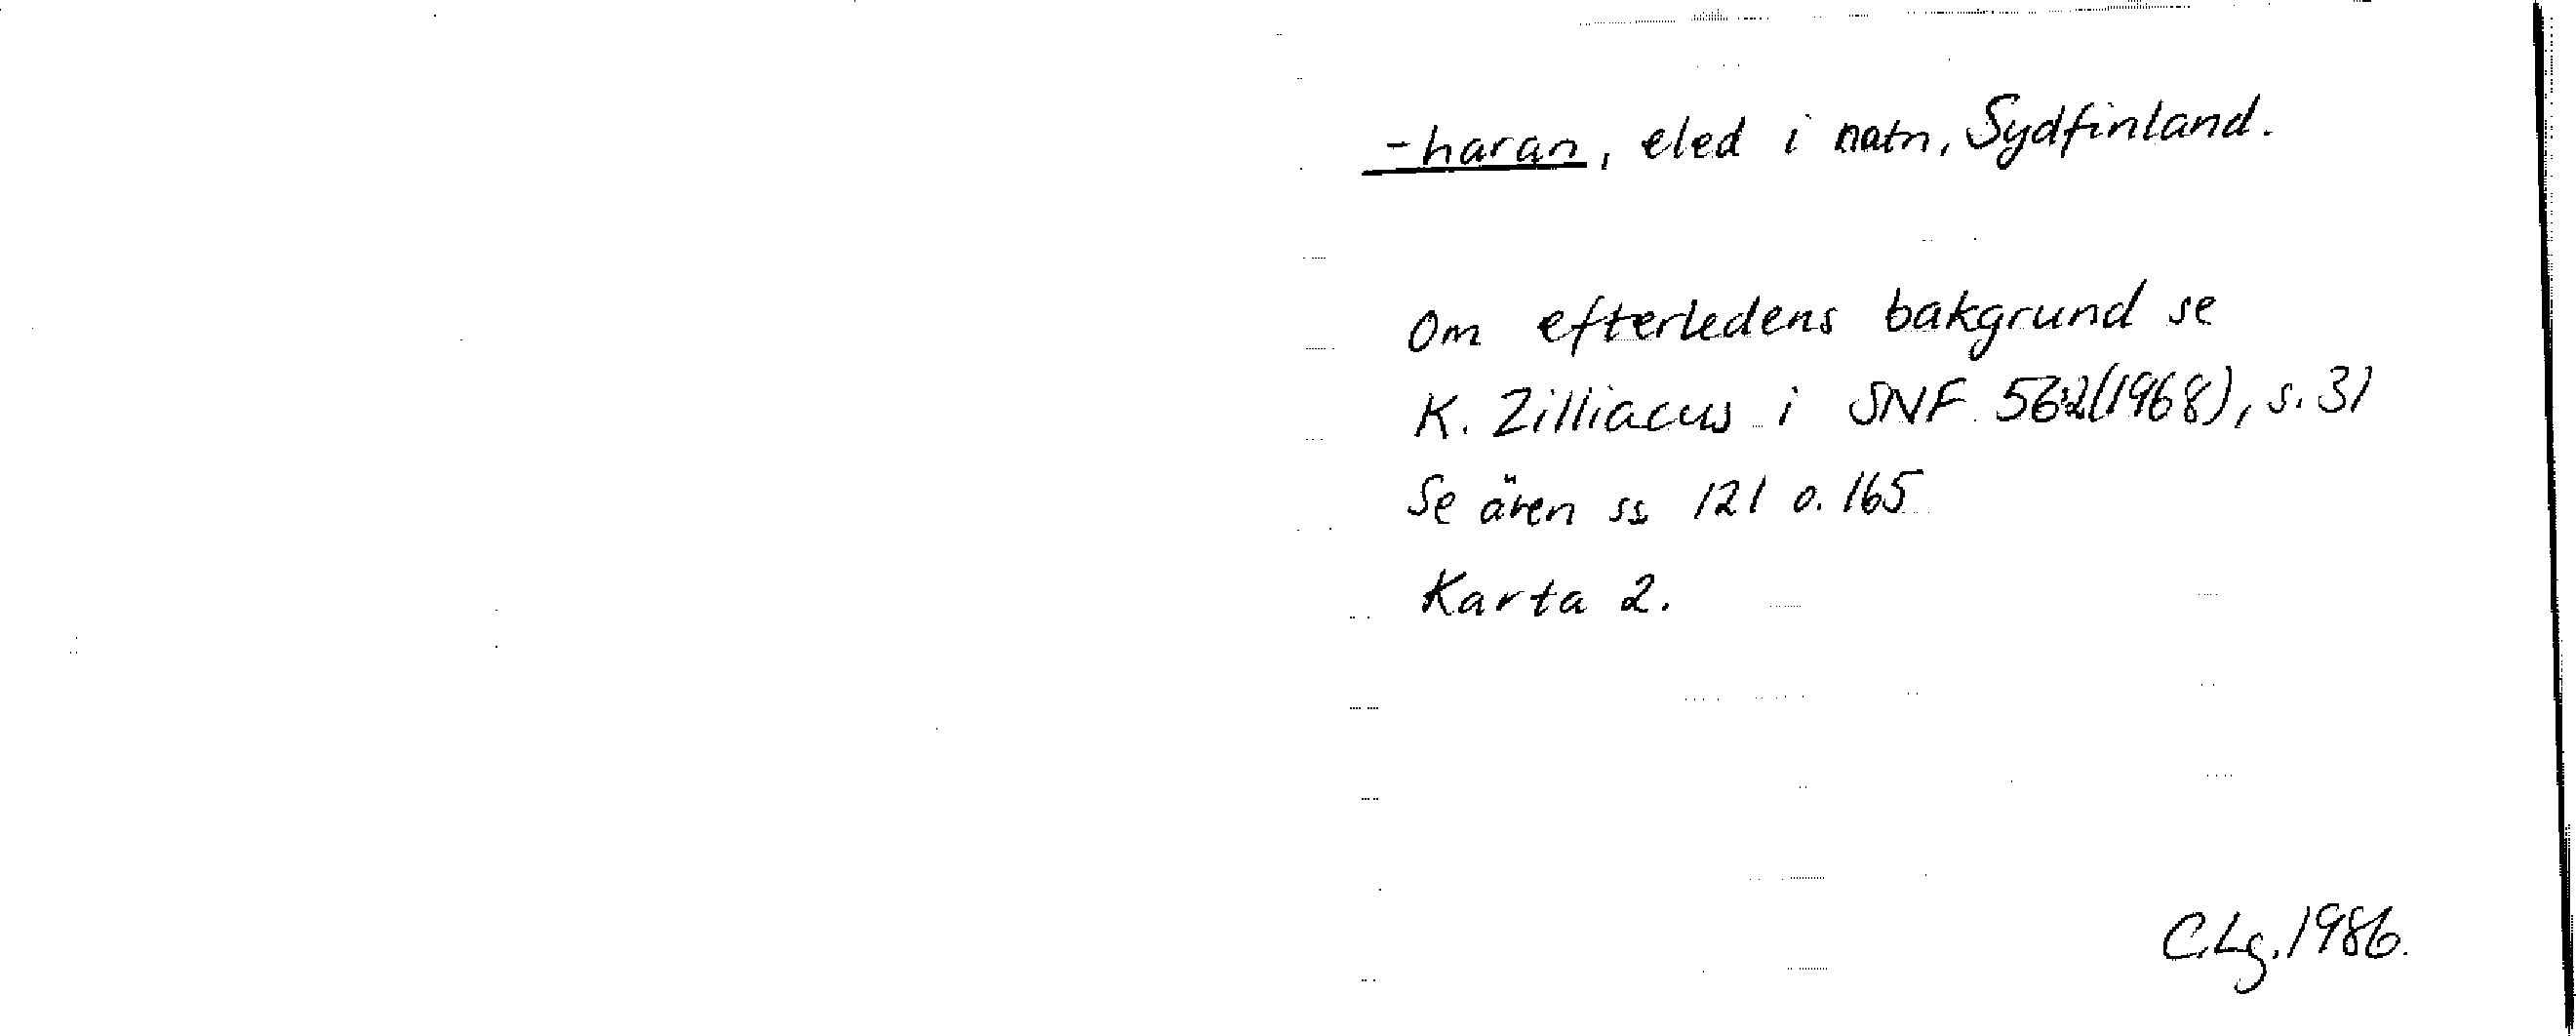 -haran, eled i natn, Sydfinland.
Om efterledens bakgrund se
K. Zilliacus i SNF 56:2(1968), s. 31
Se även ss 121 o. 165
Karta 2.
C.Lg. 1986.